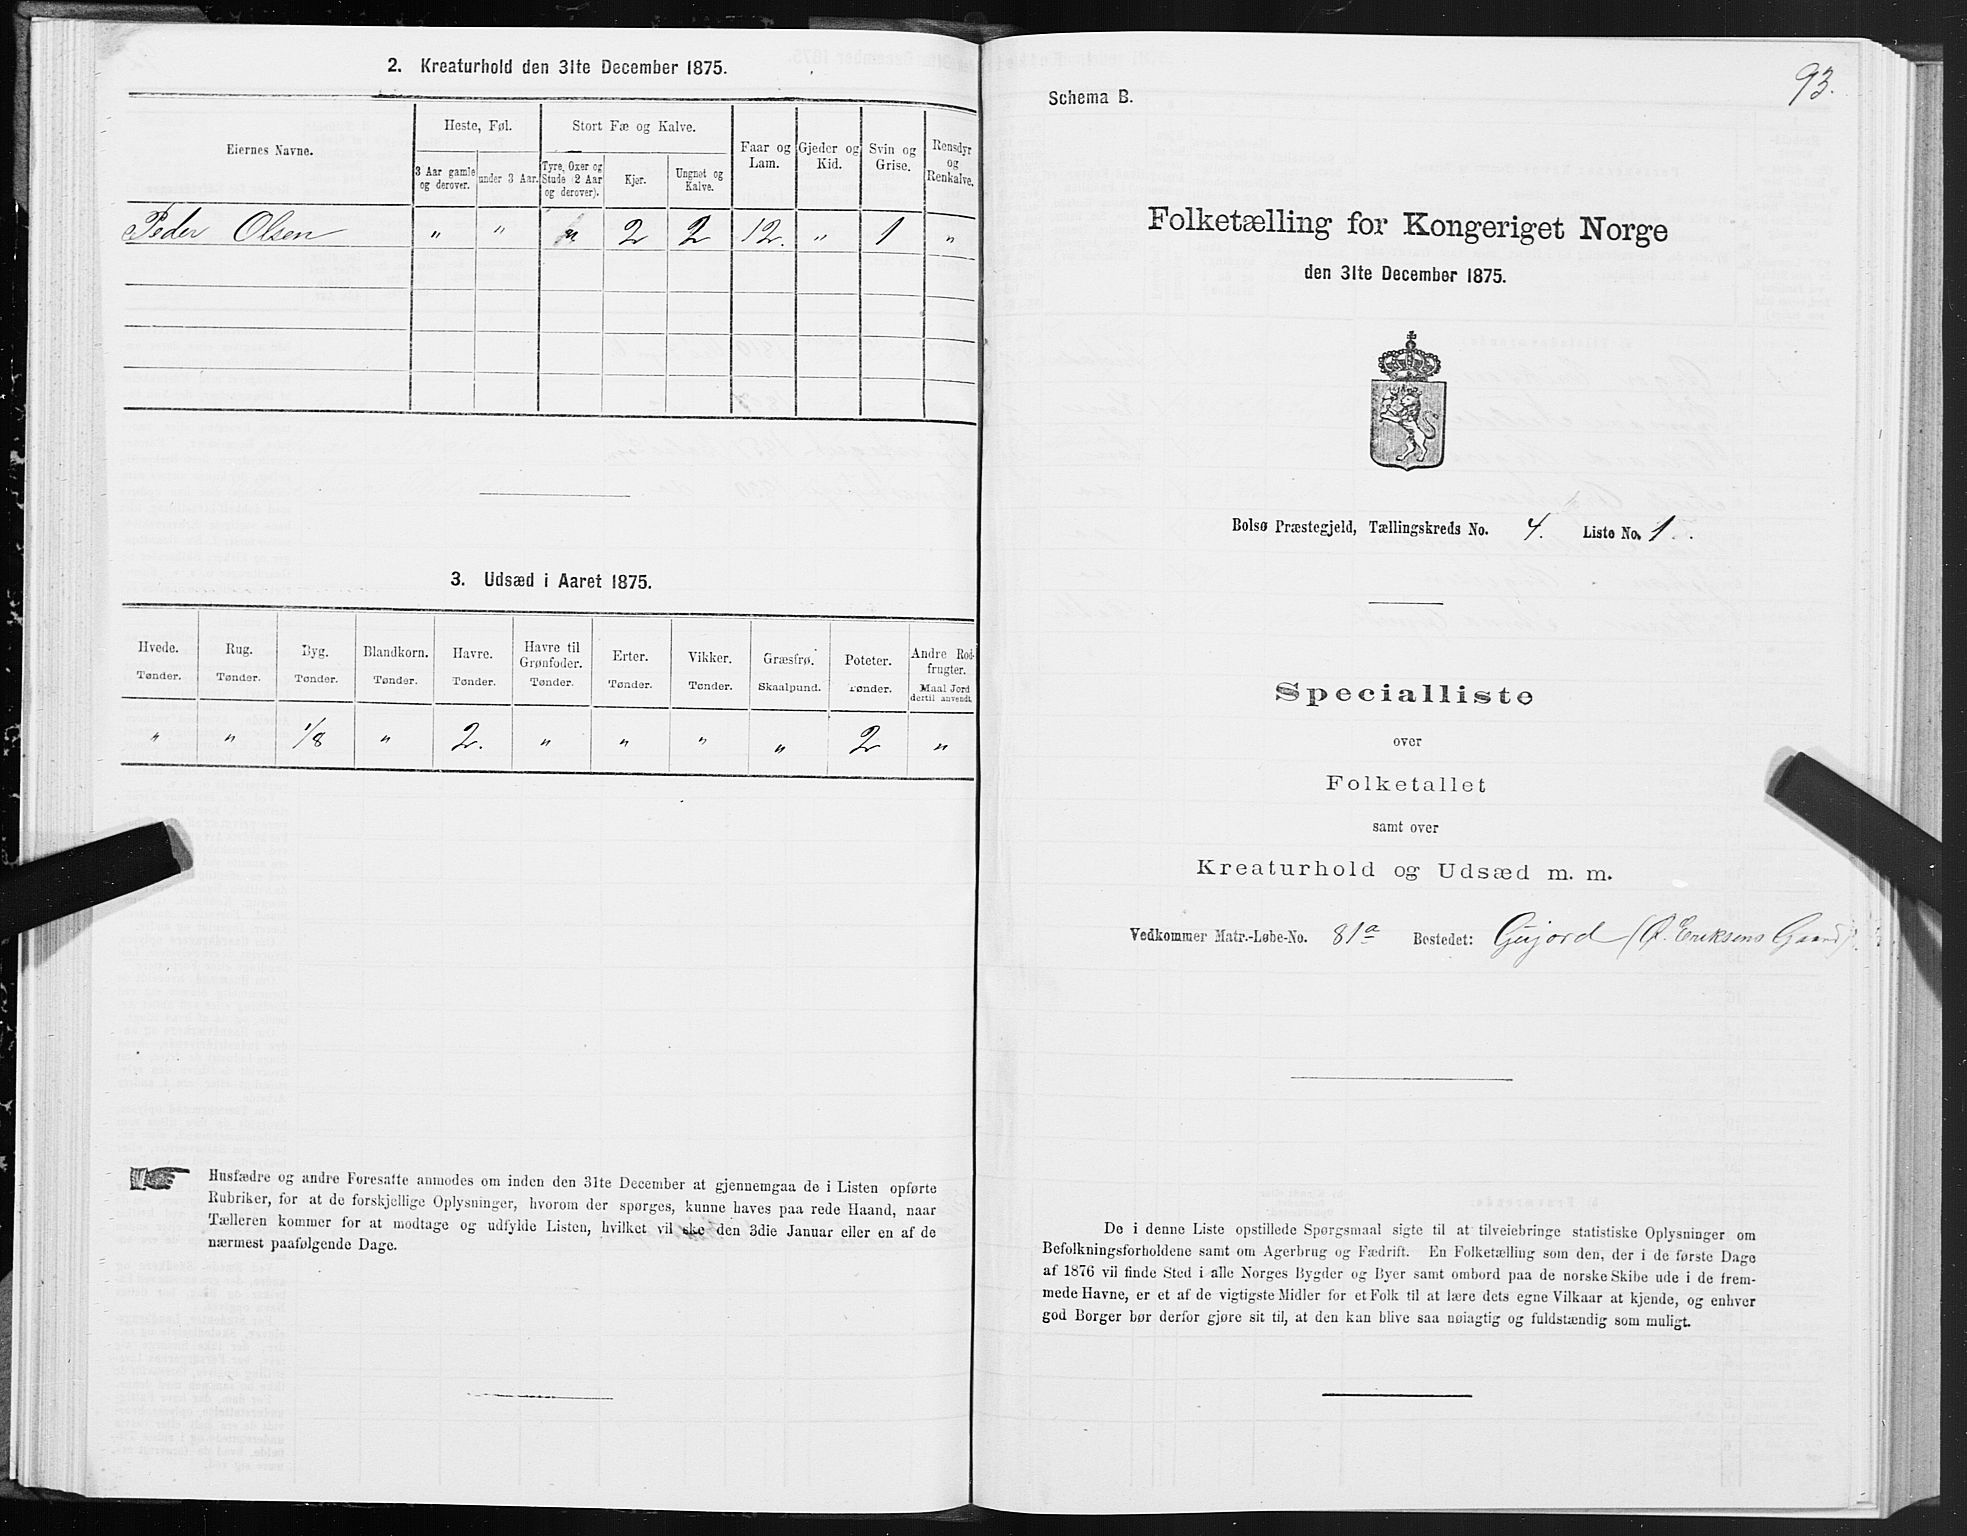 2. Kreaturhold den 31te December 1875.
Eiernes Navne.
Heste, Føl.
Stort Fæ og Kalve.
Faar og Lam.
Gjeder og Kid.
Svin og Grise.
Rensdyr og Renkalve.
3 Aar gamle og derover.
under 3 Aar.
Tyre, Oxer og Stude (2 Aar og derover).
Kjør.
Ungnøt og Kalve.
Peder Olsen " " " 2 2 12. " 1 "
3. Udsæd i Aaret 1875.
Hvede. Rug. Byg. Blandkorn. Havre. Havre til Grønfoder. Erter. Vikker. Græsfrø. Poteter. Andre Rodfrugter.
Tønder. Tønder. Tønder. Tønder. Tønder. Tønder. Tønder. Tønder. Skaalpund. Tønder. Maal Jord dertil anvendt.
" " 1/8 " 2. " " " " 2 "
Husfædre og andre Foresatte anmodes om inden den 31te December at gjennemgaa de i Listen opførte
Rubriker, for at de forskjellige Oplysninger, hvorom der spørges, kunne haves paa rede Haand, naar
Tælleren kommer for at modtage og udfylde Listen, hvilket vil ske den 3die Januar eller en af de
nærmest paafølgende Dage.
93.
Schema B.
Folketælling for Kongeriget Norge
den 31te December 1875.
Bolsø Præstegjeld, Tællingskreds No. 4. Liste No. 1.
Specialliste
over
Folketallet
samt over
Kreaturhold og Udsæd m. m.
Vedkommer Matr.-Løbe-No. 81a Bostedet: Gujord (O. Eriksens Gaard).
De i denne Liste opstillede Spørgsmaal sigte til at tilveiebringe statistiske Oplysninger om
Befolkningsforholdene samt om Agerbrug og Fædrift. En Folketælling som den, der i de første Dage
af 1876 vil finde Sted i alle Norges Bygder og Byer samt ombord paa de norske Skibe ude i de frem-
mede Havne, er et af de vigtigste Midler for et Folk til at lære dets egne Vilkaar at kjende, og enhver
god Borger bør derfor gjøre sit til, at den kan blive saa nøiagtig og fuldstændig som muligt.